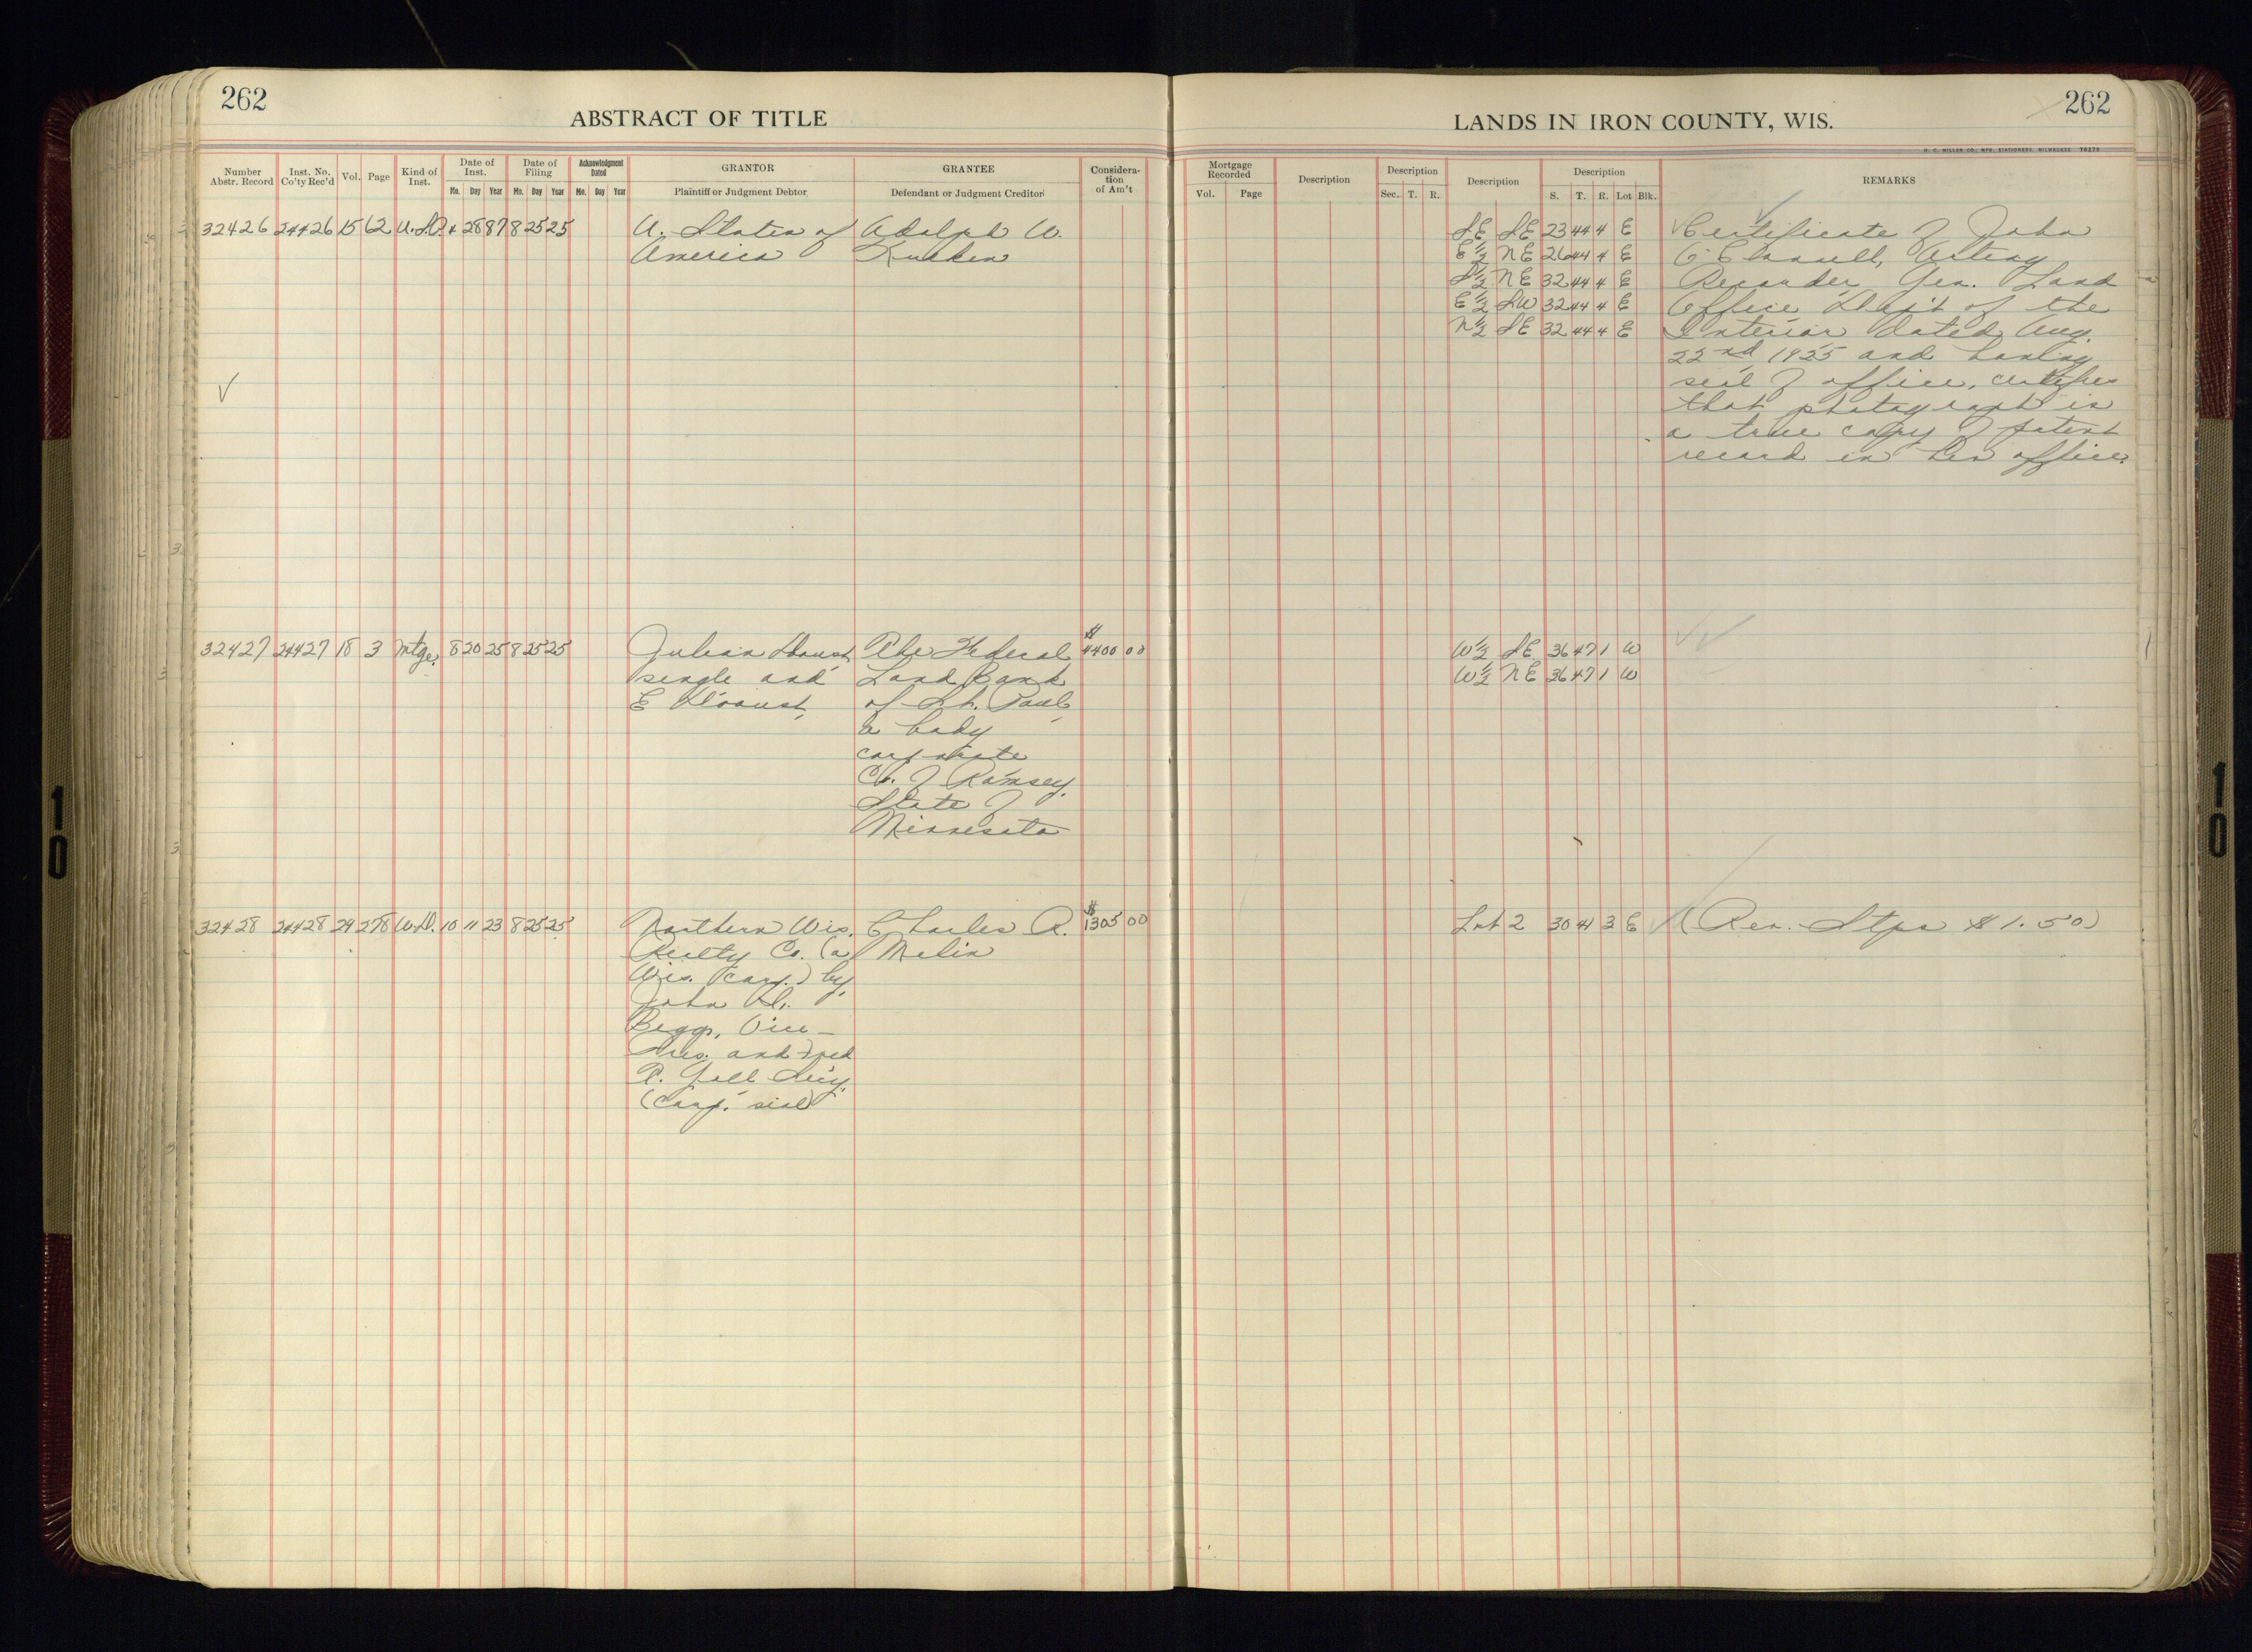 262
ABSTRACT OF TITLE
LANDS IN IRON COUNTY, WIS.
262
H. C. MILLER CO., MFG. STATIONERS, MILWAUKEE
Number Abstr. Record
Inst. No. Co'ty Rec'd
Vol.
Page
Kind of Inst.
Date of Inst.
Mo. Day Year
Date of Filing
Mo. Day Year
Acknowledgment Dated
Mo. Day Year
GRANTOR
Plaintiff or Judgment Debtor
GRANTEE
Defendant or Judgment Creditor
Consideration of Am't
Mortgage Recorded
Vol. Page
Description
Description
Sec. T. R.
Description
Description
S. T. R. Lot Blk.
REMARKS
32426 24426 15 62 U.S.P. 4 28 87 8 25 25
U. States of
America
Adolph W.
SE SE 23 44 4 E
E½ NE 26 44 4 E
S½ NE 32 44 4 E
E½ SW 32 44 4 E
N½ SE 32 44 4 E
Certificate of John
O'Connell, Acting
Recorder, Gen. Land
Office Dep't of the
Interior dated Aug.
22nd 1925 and having
seal of office, certifies
that photograph is
a true copy of patent
record in his office.
32427 24427 18 3 Mtge. 8 20 25 8 25 25
Julian
single and
E
The Federal
Land Bank
of St. Paul,
a body
corporate
Co. of Ramsey,
State of
Minnesota
$
4400 00
W½ SE 36 47 1 W
W½ NE 36 47 1 W
32428 24428 29 278 W.D. 10 11 23 8 25 25
Northern Wis.
Realty Co. (a
Wis. corp.) by,
John H.
Beggs, Vice-
Pres. and Fred
P. Gall Sec'y.
(Corp. seal)
Charles R.
Melin
$
1305 00
Lot 2 30 41 3 E
(Rev. Stps $1.50)
10
10